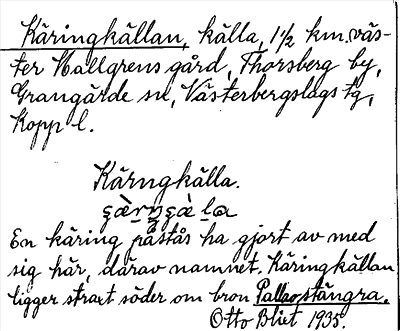 Käringkällan, källa, 1 1/2 km. väs-
ter Hallgrens gård, Thorsberg by,
Grangärde sn, Västerbergslags tg,
Kopp. l.
Kärngkälla.
En käring påstås ha gjort av med
sig här, därav namnet. Käringkällan
ligger strax söder om bron Pallosstångra.
Otto Blixt 1935